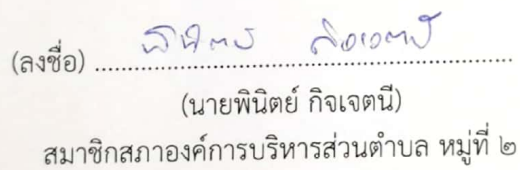 (ลงชื่อ) พินิตย์ กิจเจตนี
(นายพินิตย์ กิจเจตนี)
สมาชิกสภาองค์การบริหารส่วนตำบล หมู่ที่ ๒